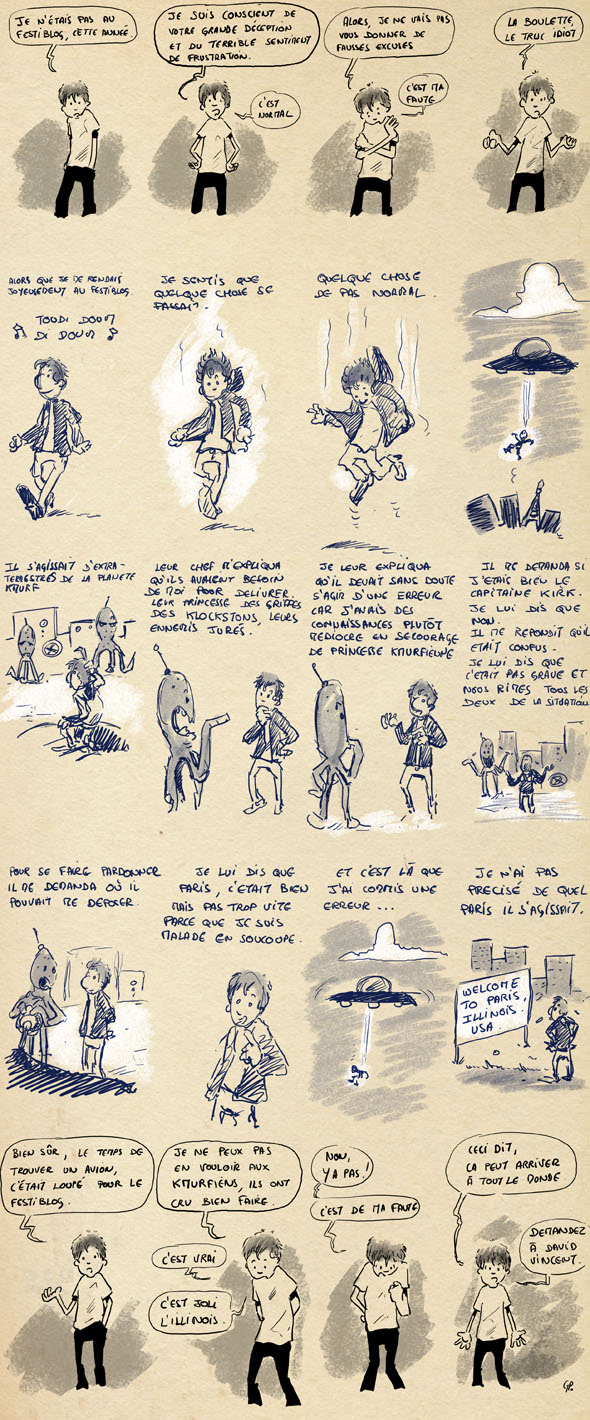 JE N'ÉTAIS PAS AU
FESTIBLOG, CETTE ANNÉE.
JE SUIS CONSCIENT DE
VOTRE GRANDE DÉCEPTION
ET DU TERRIBLE SENTIMENT
DE FRUSTRATION.
C'EST
NORMAL
ALORS, JE NE VAIS PAS
VOUS DONNER DE
FAUSSES EXCUSES
C'EST MA
FAUTE
LA BOULETTE,
LE TRUC IDIOT
ALORS QUE JE ME RENDAIS
JOYEUSEMENT AU FESTIBLOG.
TOUDI DOUM
DI DOUM
JE SENTIS QUE
QUELQUE CHOSE SE
PASSAIT.
QUELQUE CHOSE
DE PAS NORMAL.
IL S'AGISSAIT D'EXTRA-
TERRESTRES DE LA PLANETE
KMURF
LEUR CHEF M'EXPLIQUA
QU'ILS AVAIENT BESOIN
DE MOI POUR DELIVRER
LEUR PRINCESSE DES GRIFFES
DES KLOCKSTONS, LEURS
ENNEMIS JURÉS.
JE LEUR EXPLIQUA
QU'IL DEVAIT SANS DOUTE
S'AGIR D'UNE ERREUR
CAR J'AVAIS DES
CONNAISSANCES PLUTÔT
MEDIOCRE EN SECOURAGE
DE PRINCESSE KMURFIENNE
IL ME DEMANDA SI
J'ETAIS BIEN LE
CAPITAINE KIRK.
JE LUI DIS QUE
NON.
IL ME REPONDIT QU'IL
ETAIT CONFUS.
JE LUI DIS QUE
C'ETAIT PAS GRAVE ET
NOUS RIMES TOUS LES
DEUX DE LA SITUATION
POUR SE FAIRE PARDONNER
IL ME DEMANDA OÙ IL
POUVAIT ME DEPOSER.
JE LUI DIS QUE
PARIS, C'ETAIT BIEN
MAIS PAS TROP VITE
PARCE QUE JE SUIS
MALADE EN SOUCOUPE.
ET C'EST LÀ QUE
J'AI COMMIS UNE
ERREUR...
JE N'AI PAS
PRECISÉ DE QUEL
PARIS IL S'AGISSAIT.
WELCOME
TO PARIS,
ILLINOIS.
USA.
BIEN SÛR, LE TEMPS DE
TROUVER UN AVION,
C'ÉTAIT LOUPÉ POUR LE
FESTIBLOG.
JE NE PEUX PAS
EN VOULOIR AUX
KMURFIENS, ILS ONT
CRU BIEN FAIRE.
C'EST VRAI
C'EST JOLI
L'ILLINOIS.
NON,
Y A PAS!
C'EST DE MA FAUTE
CECI DIT,
ÇA PEUT ARRIVER
À TOUT LE MONDE
DEMANDEZ
À DAVID
VINCENT.
GP.